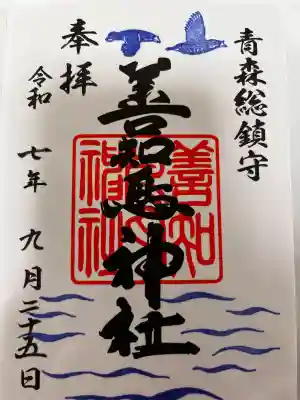 青森総鎮守
善知鳥神社
奉拝
令和七年九月二十五日
善知
鳥印
神社